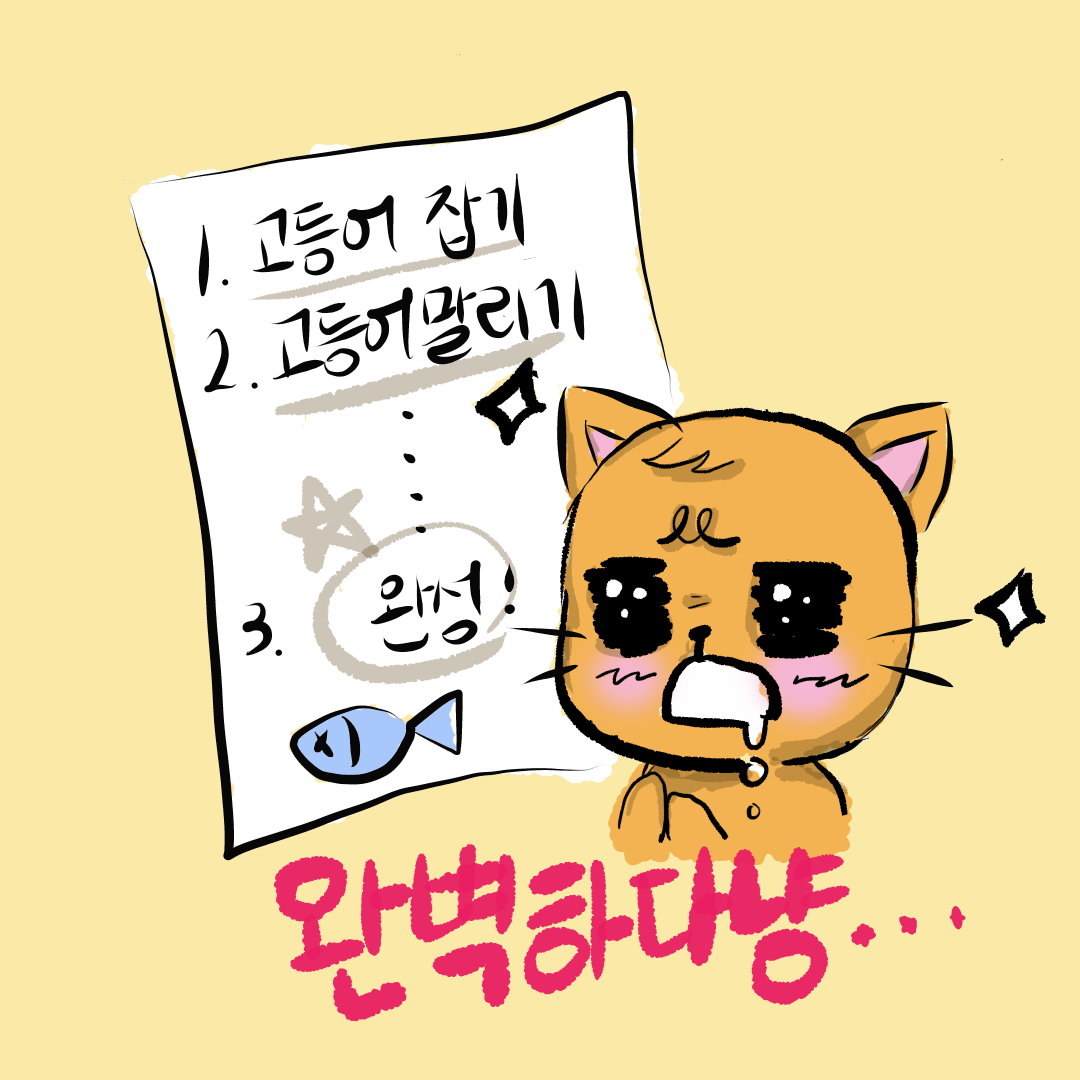 1. 고등어 잡기
2. 고등어말리기
3. 완성!
완벽하다냥...